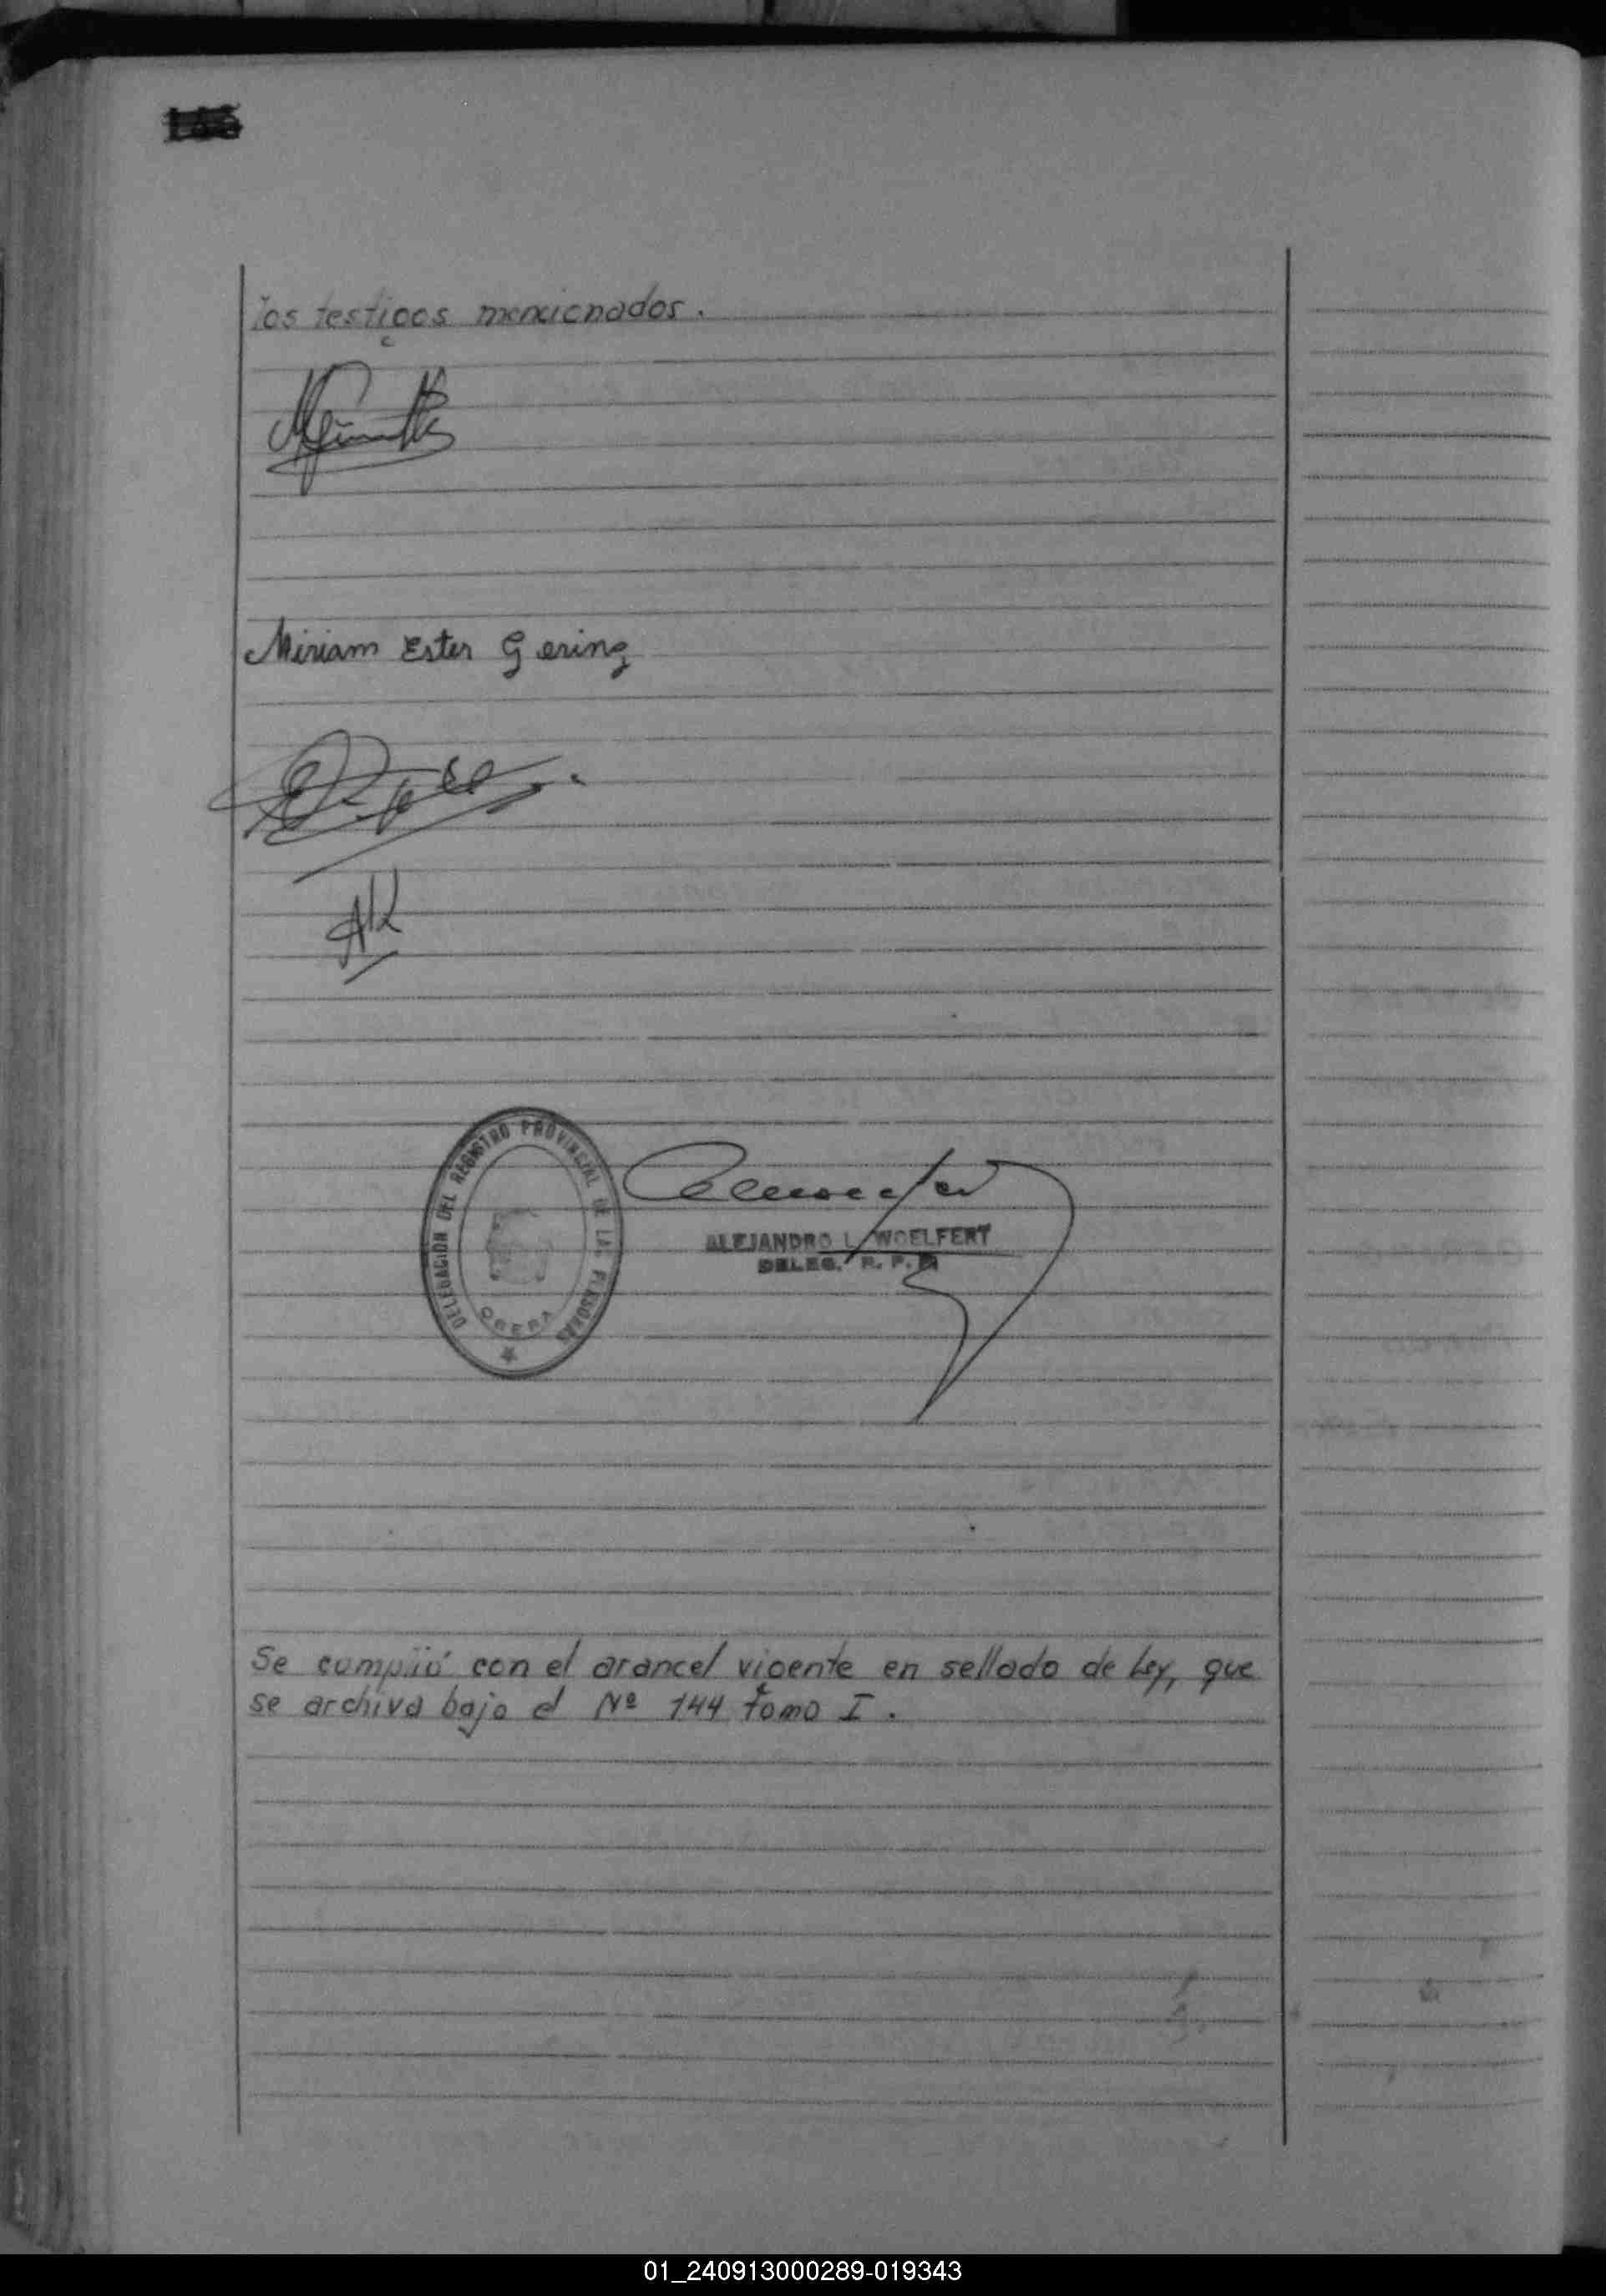 los testigos mencionados.
Miriam Ester Gering
DELEGACIÓN DEL REGISTRO PROVINCIAL DE LAS PERSONAS
OBERA
ALEJANDRO L. WOELFERT
DELEG. R. P. P.
Se cumplió con el arancel vigente en sellado de Ley, que
se archiva bajo el Nº 144 tomo I.
01_240913000289-019343